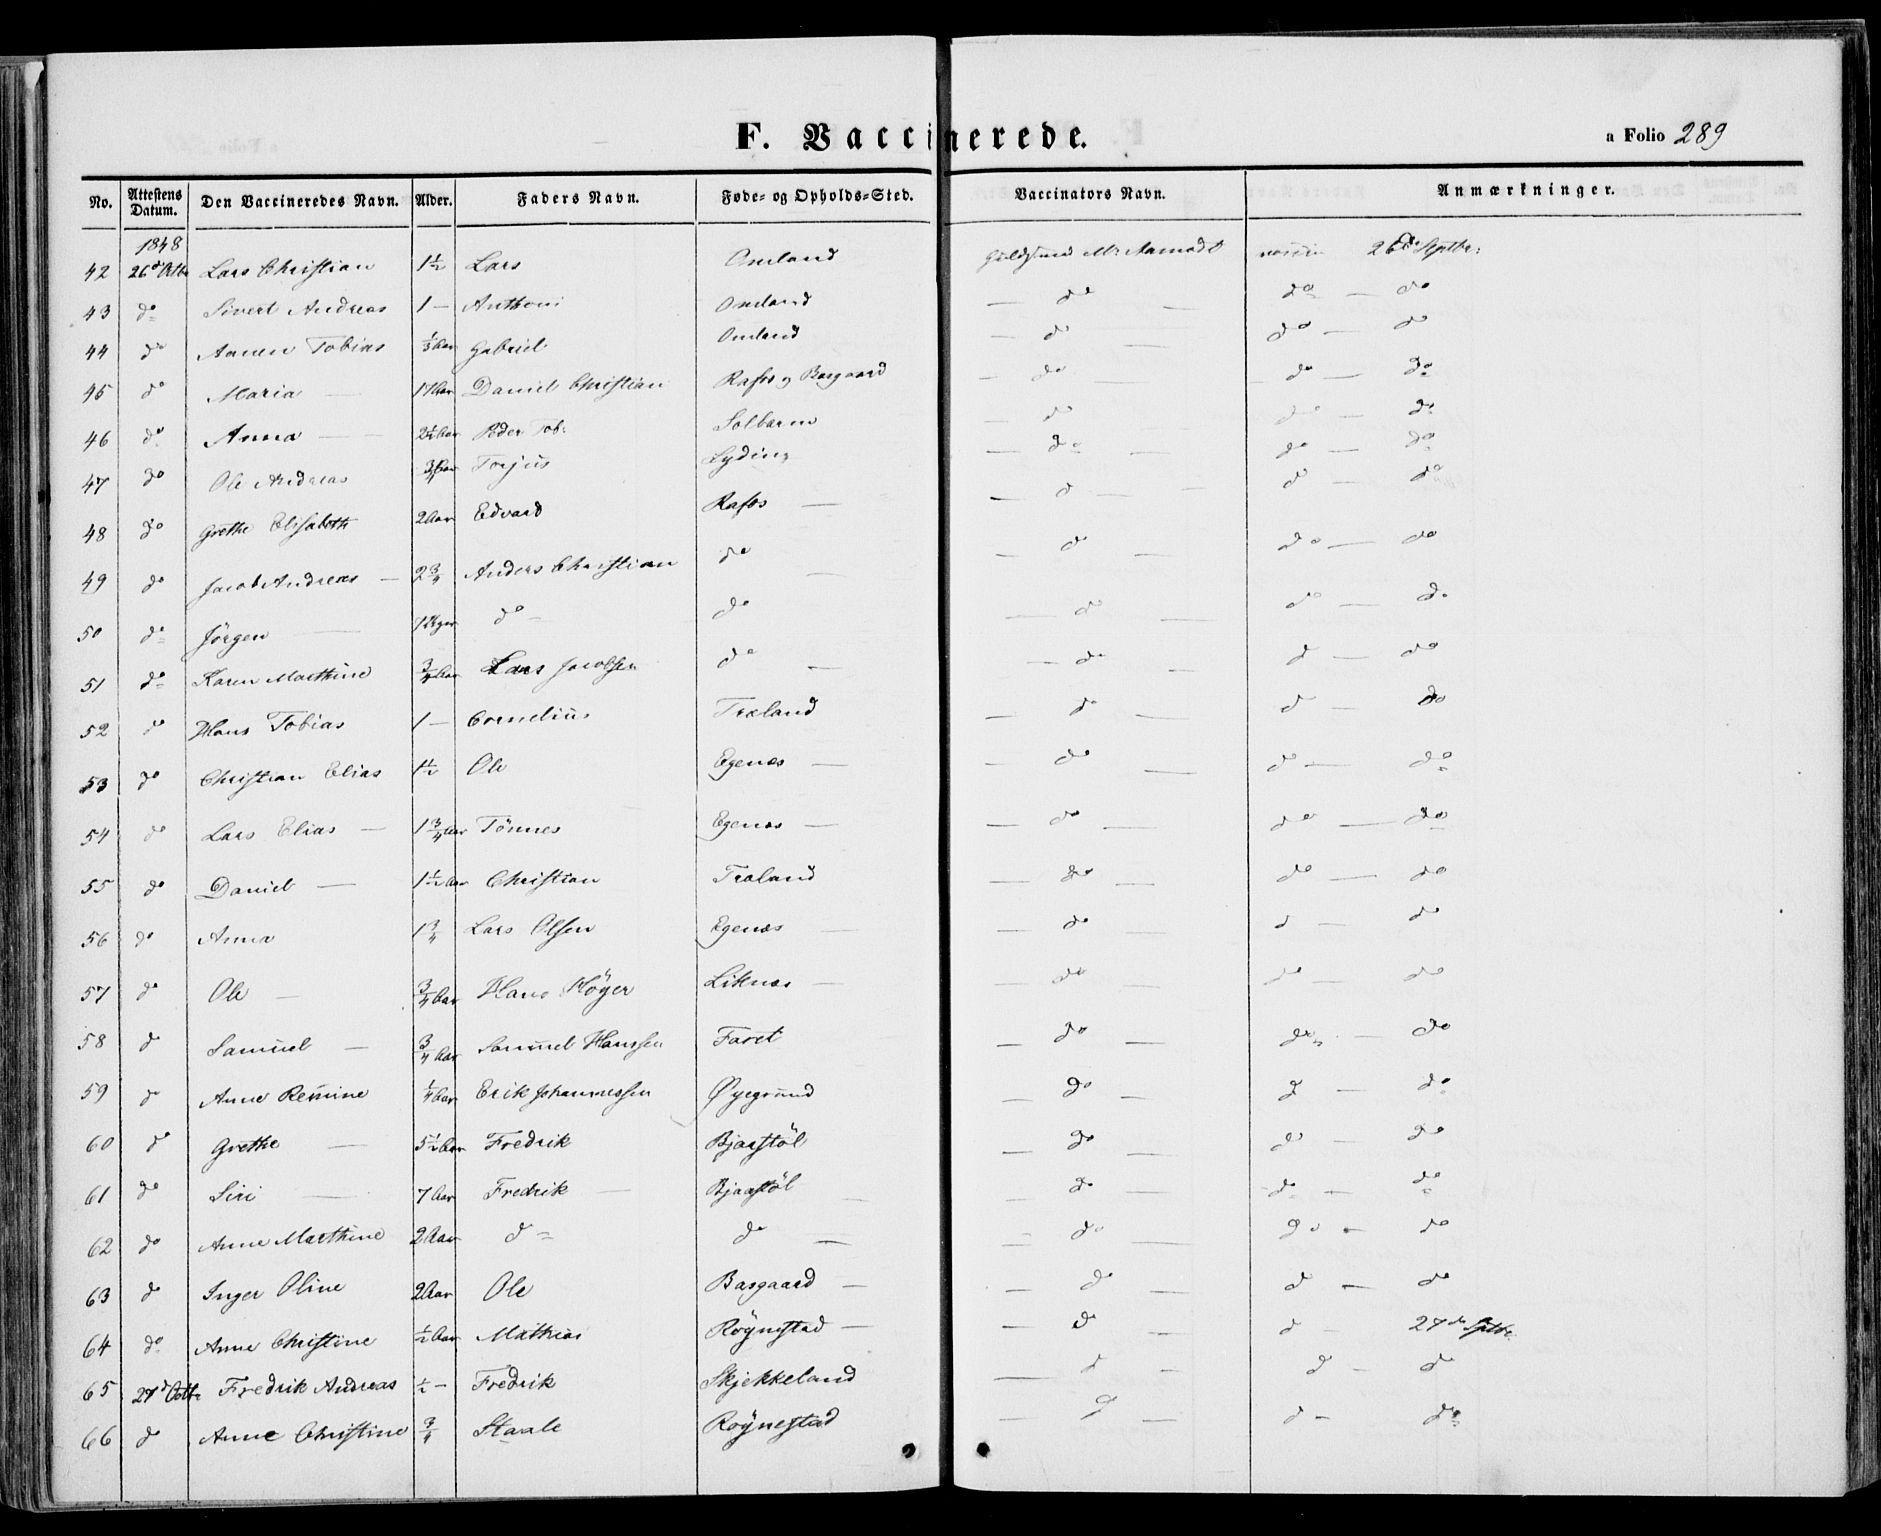 F. Vaccinerede.
a Folio 289
No. Attestens Datum. Den Vaccineredes Navn. Alder. Faders Navn. Føde- og Opholds-Sted. Vaccinators Navn. Anmærkninger.
1848
42 26d Octbr Lars Christian 1½ Lars Omland M. Aamodt 26de Septbr:
43 do Sivert Andreas 1 — Anthoni Omland — do — do — do
44 do Aanen Tobias ⅓ Aar Gabriel Omland — do — do — do
45 do Maria — 17 Aar Daniel Christian Rafos og Basgaard — do — do — do
46 do Anna — 2½ Aar Peder Tob: Solbærm — do — do — do
47 do Ole Andreas ¾ Aar Torjus Lyding — do — do — do
48 do Grethe Elisabeth 2 Aar Edvard Rafos — — d — d — do
49 do Jacob Andreas — 2¾ Anders Christian do — — d — do — do
50 do Jörgen — do — do — do — do — do
51 do Karen Marthine ¾ Aar Lars Jacobsen do — — do — d — do
52 do Hans Tobias 1 — Cornelius Træland — do — d — do
53 do Christian Elias 1½ Ole Egenæs — — do — do — do
54 do Lars Elias — 1¾ Aar Tönnes Egenæs — — do — do — do
55 do Daniel — 1½ Aar Christian Træland — do — do — do
56 do Anna 1¾ Lars Olsen Egenæs — — do — d — do
57 do Ole — ¾ Aar Hans Höyer Liknæs — — do — do — do
58 d Samuel — ¾ Aar Samuel Hanssen Faret — do — do — do
59 d Anne Remine ¼ Aar Erik Johannessen Øyegrund — do — d — do
60 d Grethe — 5½ Aar Fredrik Bjaastöl — do — do — do
61 do Siri — 7 Aar Fredrik — Bjaastöl — — do — do — do
62 do Anne Marthine 2 Aar d do — — do — do — do
63 d Inger Oline 2 Aar Ole Basgaard — — do — d — do
64 do Anne Christine ½ Aar Mathias Röynestad — — d — d — 27de Septbr.
65 27d Octbr Fredrik Andreas ½ — Fredrik Skjekkeland — d — d — d
66 d Anne Christine ¾ Staale Röynestad — d — d — do